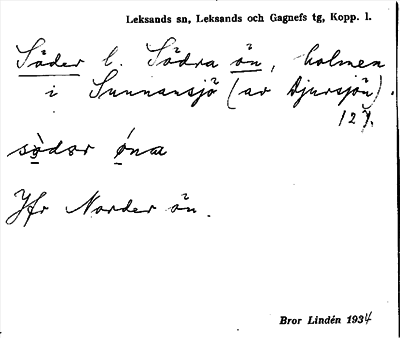 Leksands sn, Leksands och Gagnefs tg, Kopp. l.
Söder l. Södra ön, holmen
i Sunnansjö (av Djursjön).
127.
sòdər ø̀na
Jfr Norder ön.
Bror Lindén 1934